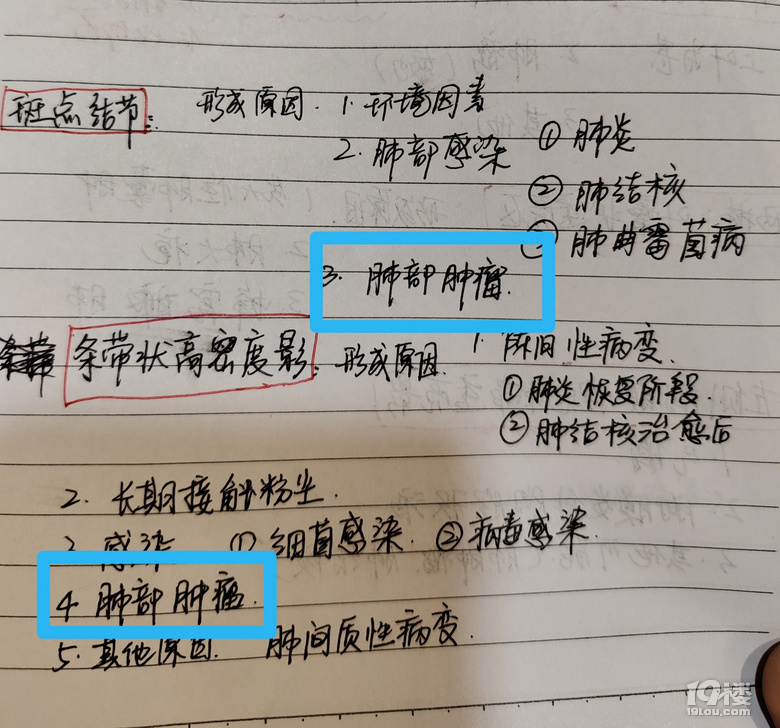 斑点结节: 形成原因. 1. 环境因素
2. 肺部感染 ① 肺炎
② 肺结核
③ 肺曲霉菌病
3. 肺部肿瘤.
条带状高密度影: 形成原因. 1. 陈旧性病变.
① 肺炎恢复阶段.
② 肺结核治愈后
2. 长期接触粉尘.
3. 感染 ① 细菌感染. ② 病毒感染.
4. 肺部肿瘤.
5. 其他原因. 肺间质性病变.
19楼
19lou.com